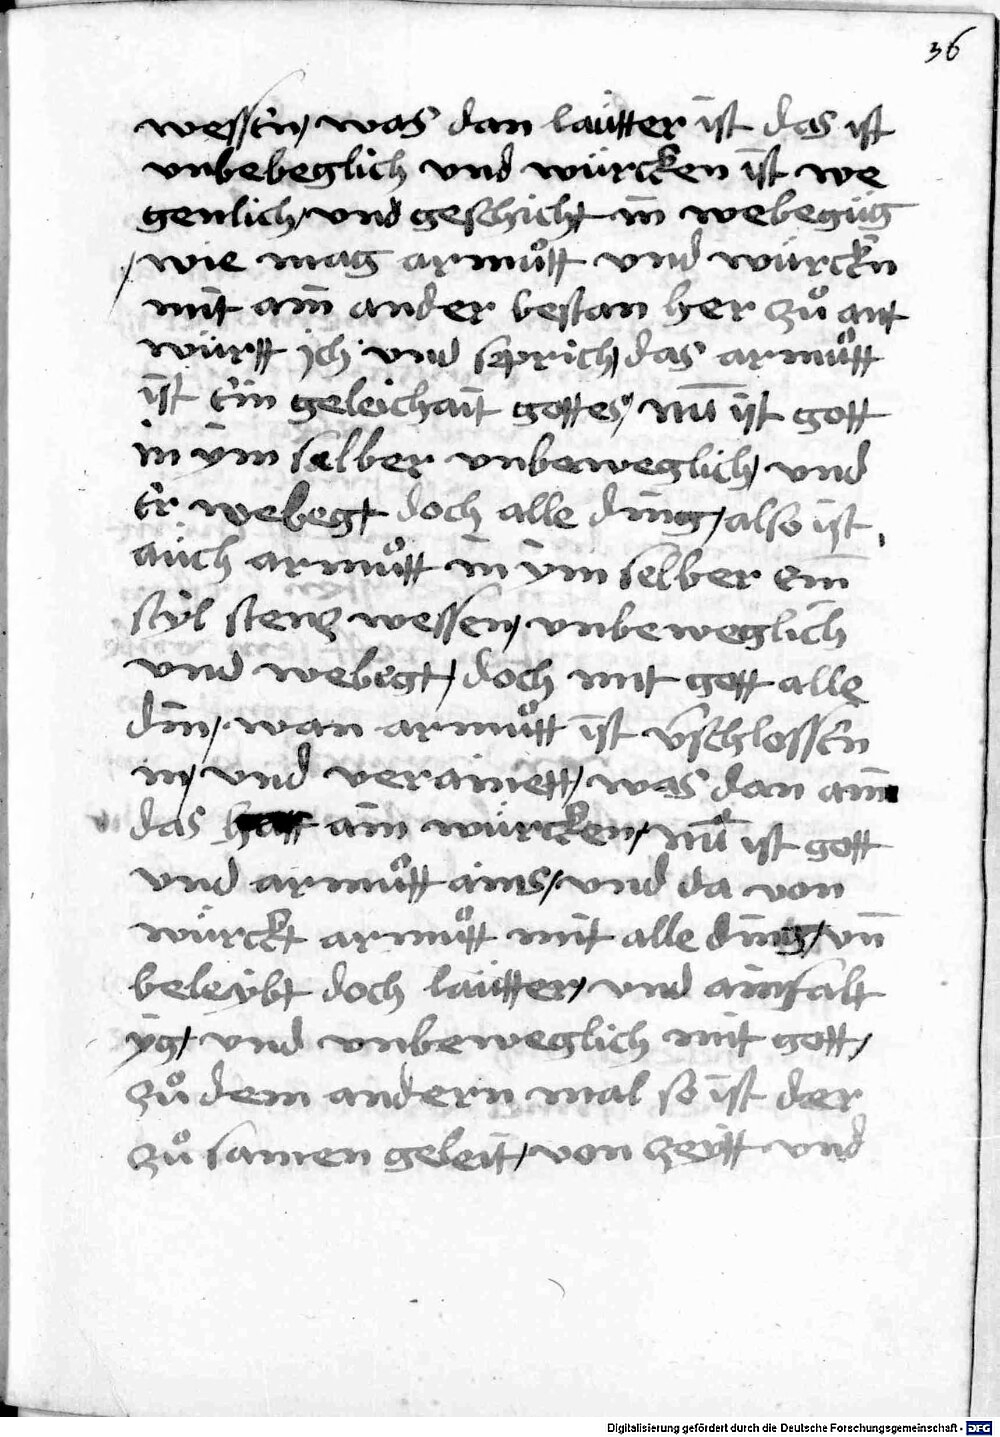 36
wessen / was dan laütter ist das ist
vnbebeglich vnd würcken ist we
genlich / vnd geschicht in webegüg
/ wie mag armuͦtt vnd würckn
mit ain ander bestan her zuͦ ant
württ jch vnd sprich das armuͦtt
ist ein geleichait gottes / nū ist gott
in ym selber vnbeweglich / vnd
er webegt doch alle ding / also ist
aüch armuͦtt in ym selber ein
styl stenz wessen / vnbeweglich
vnd webegt / doch mit gott alle
din / wan armuͦtt ist v̄schlossen
in / vnd verainett / was dan ain
das ain würcken / nū ist gott
vnd armuͦtt ains / vnd da von
würckt armuͦtt mit alle ding / vn̄
beleybt doch laütter / vnd ainfalt
yg / vnd vnbeweglich mit gott /
zuͦ dem andern mal so ist der
zuͦ samen geleit / von zeytt vnd
Digitalisierung gefördert durch die Deutsche Forschungsgemeinschaft - DFG